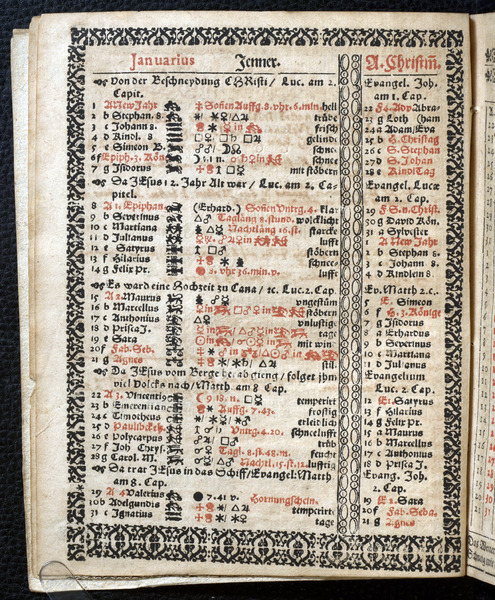 Januarius Jenner. A. Christm.
Von der Beschneydung CHRisti/ Luc. am 2. Evangel. Joh.
Capit. am 1. Cap.
1 A New Jahr Soñen Auffg. 8. vhr. 6. min. hell 22 F 4. Adv Abra-
2 b Stephan 8. trübe 23 g Loth Cham
3 c Johann 8. in frisch 24 a Adam/Eva
4 d Kindl. 8 gelind 25 b H. Christag
5 e Simeon B. schnee 26 c S. Stephan
6 f Epiph. 3. Kön in schnee 27 d S. Johan
7 g Isidorus mit stöbern 28 e Kindl Tag
Da JEsus 12. Jahr Alt war/ Luc. am 2. Ca- Evangel. Lucæ
pitel. am 2. Cap.
8 A 1. Epiphan. (Erhard.) Soñen Vntrg. 4. klar 29 F S. n. Christ.
9 b Severinus Taglång 8. stund. wolcklicht 30 g David Kön.
10 c Martiana Nachtlång 16. st. starcke 31 a Sylvester
11 d Julianus in luffe A New Jahr
12 e Satyrus stöbern 2 b Stephan 8.
13 f Hilarius schnee 3 c Johann 8.
14 g Felix Pr. 2. vhr 36. min. v. luffe 4 d Kindlein 8.
Es ward eine Hochzeit zu Cana/ ꝛc. Luc. 2. Cap. Ev. Matth 2. c.
15 A 2 Maurus vngestüm 5 E. Simeon
16 b Marcellus in in stöbern 6 f H. 3. Könige
17 c Anthonius vnlustig 7 g Isidorus
18 d Prisca J. in trübe 8 a Erhardus
19 e Sara in in mit win 9 b Severinus
20 f Fab. Seb. in in 10 c Martiana
21 g Agnes stil. 11 d Julianus
Da JEsus vom Berge herab gieng/ folget jhm Evangelium
viel Volcks nach/ Matth. am 8 Cap. Luc. 2. Cap.
22 A 3. Vincentiᵒ 9. 18. n. temperirt 12 E. Satyrus
23 b Emerentian Auffg. 7. 43. frostig 13 f Hilarius
24 c Timotheus erleidlich 14 g Felix Pr.
25 d Pauli bekeh. Vntrg. 4. 20. schneelufft 15 a Maurus
26 e Polycarpus trüb 16 b Marcellus
27 f Joh Chrys. Tagl. 8. st. 48. m. feucht 17 c Anthonius
28 g Carol. M. Nachtl. 15. st. 12. lufftig 18 d Prisca J.
Da trat JEsus in das Schiff/ Evangel: Matth Evang. Joh.
am 8. Cap. 2. Cap.
29 A 4 Valerius 7. 41 v. Hornungschein. 19 E 2. Sara
30 b Adelgundis temperirte 20 f Fab. Seba.
31 c Ignatius tage 21 g Agnes